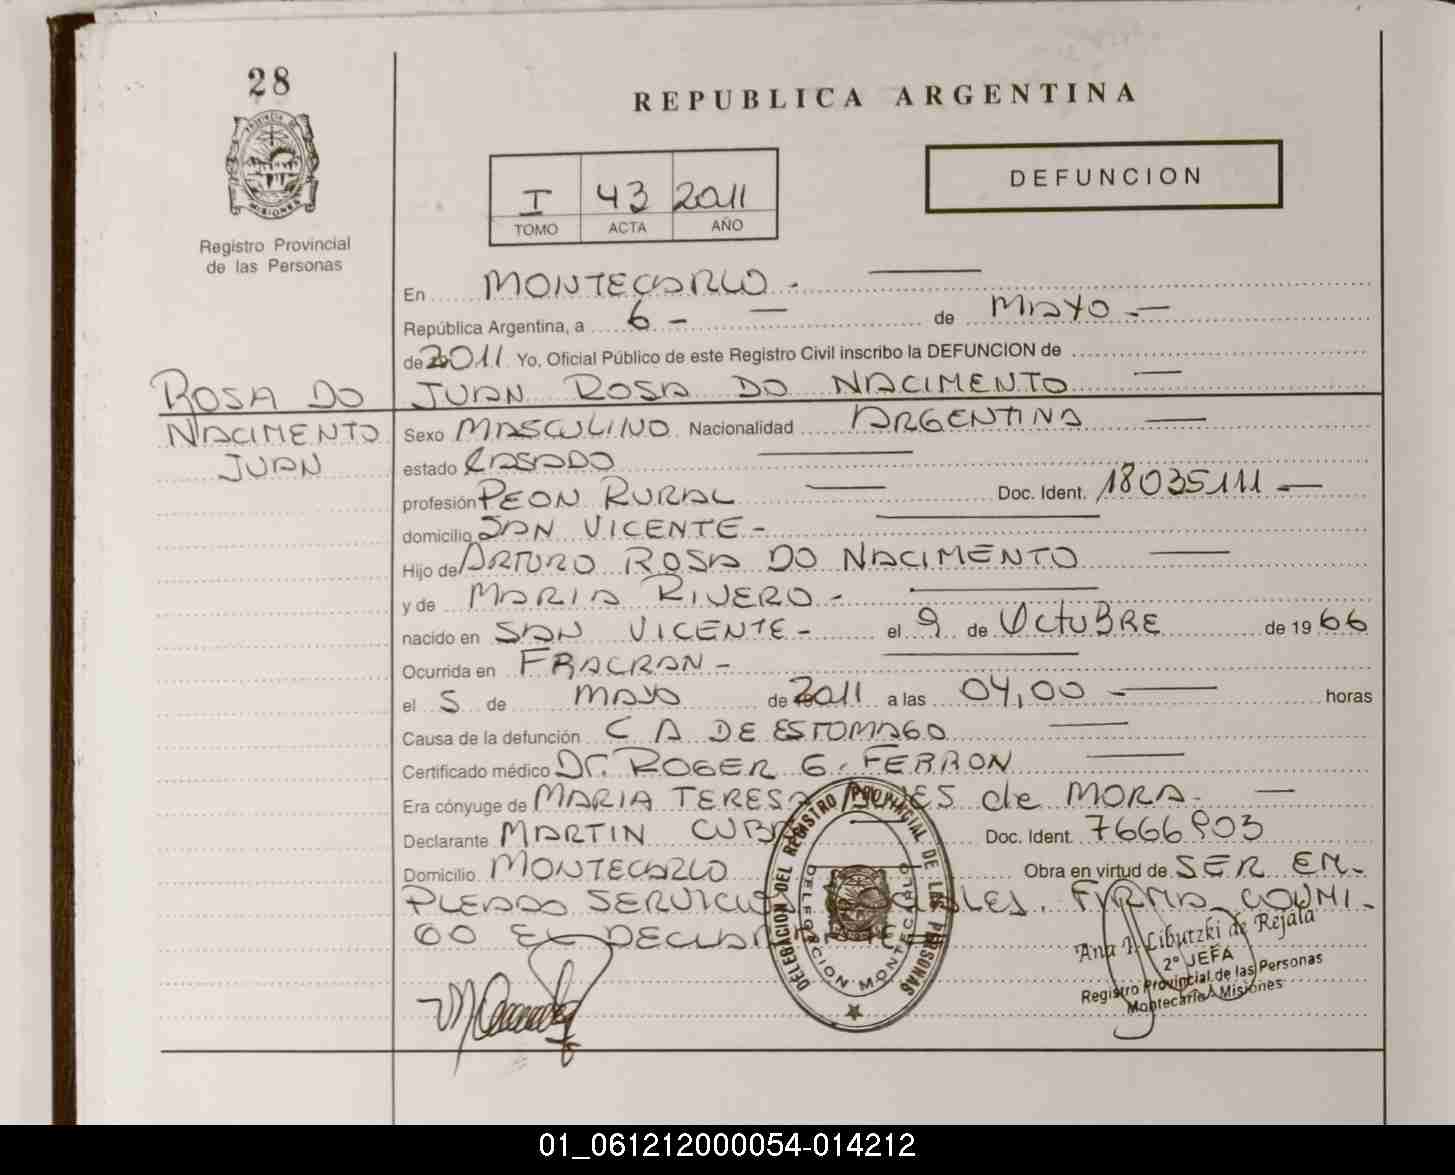 28
PROVINCIA DE
MISIONES
Registro Provincial
de las Personas
REPUBLICA ARGENTINA
I 43 2011
TOMO ACTA AÑO
DEFUNCION
En MONTECARLO -
República Argentina, a 6 - de MAYO -
de 2011 Yo, Oficial Público de este Registro Civil inscribo la DEFUNCION de
ROSA DO
NACIMENTO
JUAN
JUAN ROSA DO NACIMENTO
Sexo MASCULINO Nacionalidad ARGENTINA
estado CASADO
profesión PEON RURAL Doc. Ident. 18035111
domicilio SAN VICENTE -
Hijo de ARTURO ROSA DO NACIMENTO
y de MARIA RIVERO -
nacido en SAN VICENTE - el 9 de OCTUBRE de 1966
Ocurrida en FRACRAN -
el 5 de MAYO de 2011 a las 04,00 - horas
Causa de la defunción C A DE ESTOMAGO
Certificado médico Dr. ROGER G. FERRON
Era cónyuge de MARIA TERESA de MORA -
Declarante MARTIN Doc. Ident. 7666903
Domicilio MONTECARLO Obra en virtud de SER EM-
PLEADO SERVICIOS FIRMA CONMI-
GO EL DECLARANTE
DELEGACION DEL REGISTRO PROVINCIAL DE LAS PERSONAS
DELEGACION MONTECARLO
Ana I. Libutzki de Rejala
2º JEFA
Registro Provincial de las Personas
Montecarlo - Misiones
01_061212000054-014212